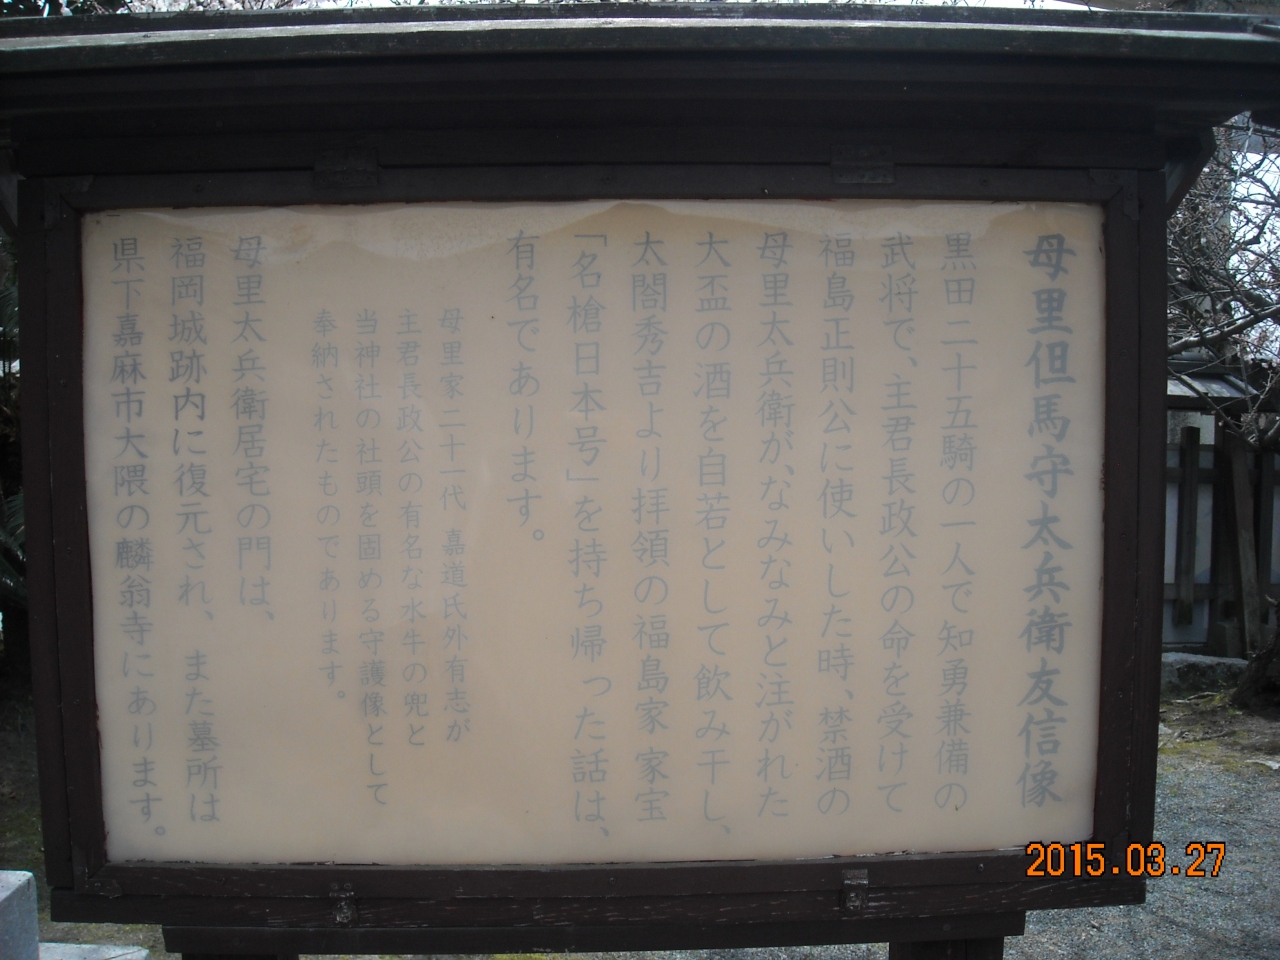 母里但馬守太兵衛友信像
黒田二十五騎の一人で知勇兼備の
武将で、主君長政公の命を受けて
福島正則公に使いした時、禁酒の
母里太兵衛が、なみなみと注がれた
大盃の酒を自若として飲み干し、
太閤秀吉より拝領の福島家家宝
「名槍日本号」を持ち帰った話は、
有名であります。
母里家二十一代 嘉道氏外有志が
主君長政公の有名な水牛の兜と
当神社の社頭を固める守護像として
奉納されたものであります。
母里太兵衛居宅の門は、
福岡城跡内に復元され、また墓所は
県下嘉麻市大隈の麟翁寺にあります。
2015.03.27